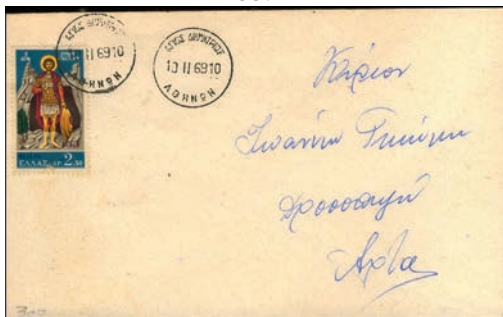 ΑΓΙΟΣ ΔΗΜΗΤΡΙΟΣ
10 II 6910
ΑΘΗΝΩΝ
ΑΓΙΟΣ ΔΗΜΗΤΡΙΟΣ
10 II 6910
ΑΘΗΝΩΝ
ΕΛΛΑΣ ΔΡ. 2.50
Κύριον
Ιωάννην
Δροσοπηγή
Άρτα